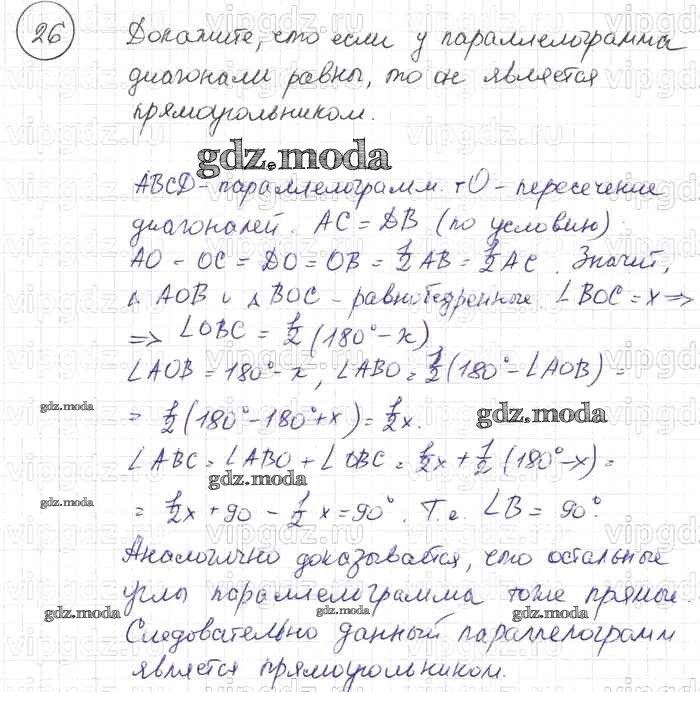 26
Докажите, что если у параллелограмма
диагонали равны, то он является
прямоугольником.
gdz.moda
ABCD - параллелограмм. т О - пересечение
диагоналей. AC = DB (по условию).
AO = OC = DO = OB = 1/2 AB = 1/2 AC. Значит,
△ AOB и △ BOC - равнобедренные. ∠BOC = x ⇒
⇒ ∠OBC = 1/2 (180° - x)
∠AOB = 180° - x, ∠ABO = 1/2 (180° - ∠AOB) =
gdz.moda
= 1/2 (180° - 180° + x) = 1/2 x.
gdz.moda
∠ABC = ∠ABO + ∠OBC = 1/2 x + 1/2 (180° - x) =
gdz.moda
gdz.moda
= 1/2 x + 90 - 1/2 x = 90°. Т.е. ∠B = 90°.
Аналогично доказывается, что остальные
углы параллелограмма тоже прямые.
gdz.moda gdz.moda gdz.moda
Следовательно данный параллелограмм
является прямоугольником.